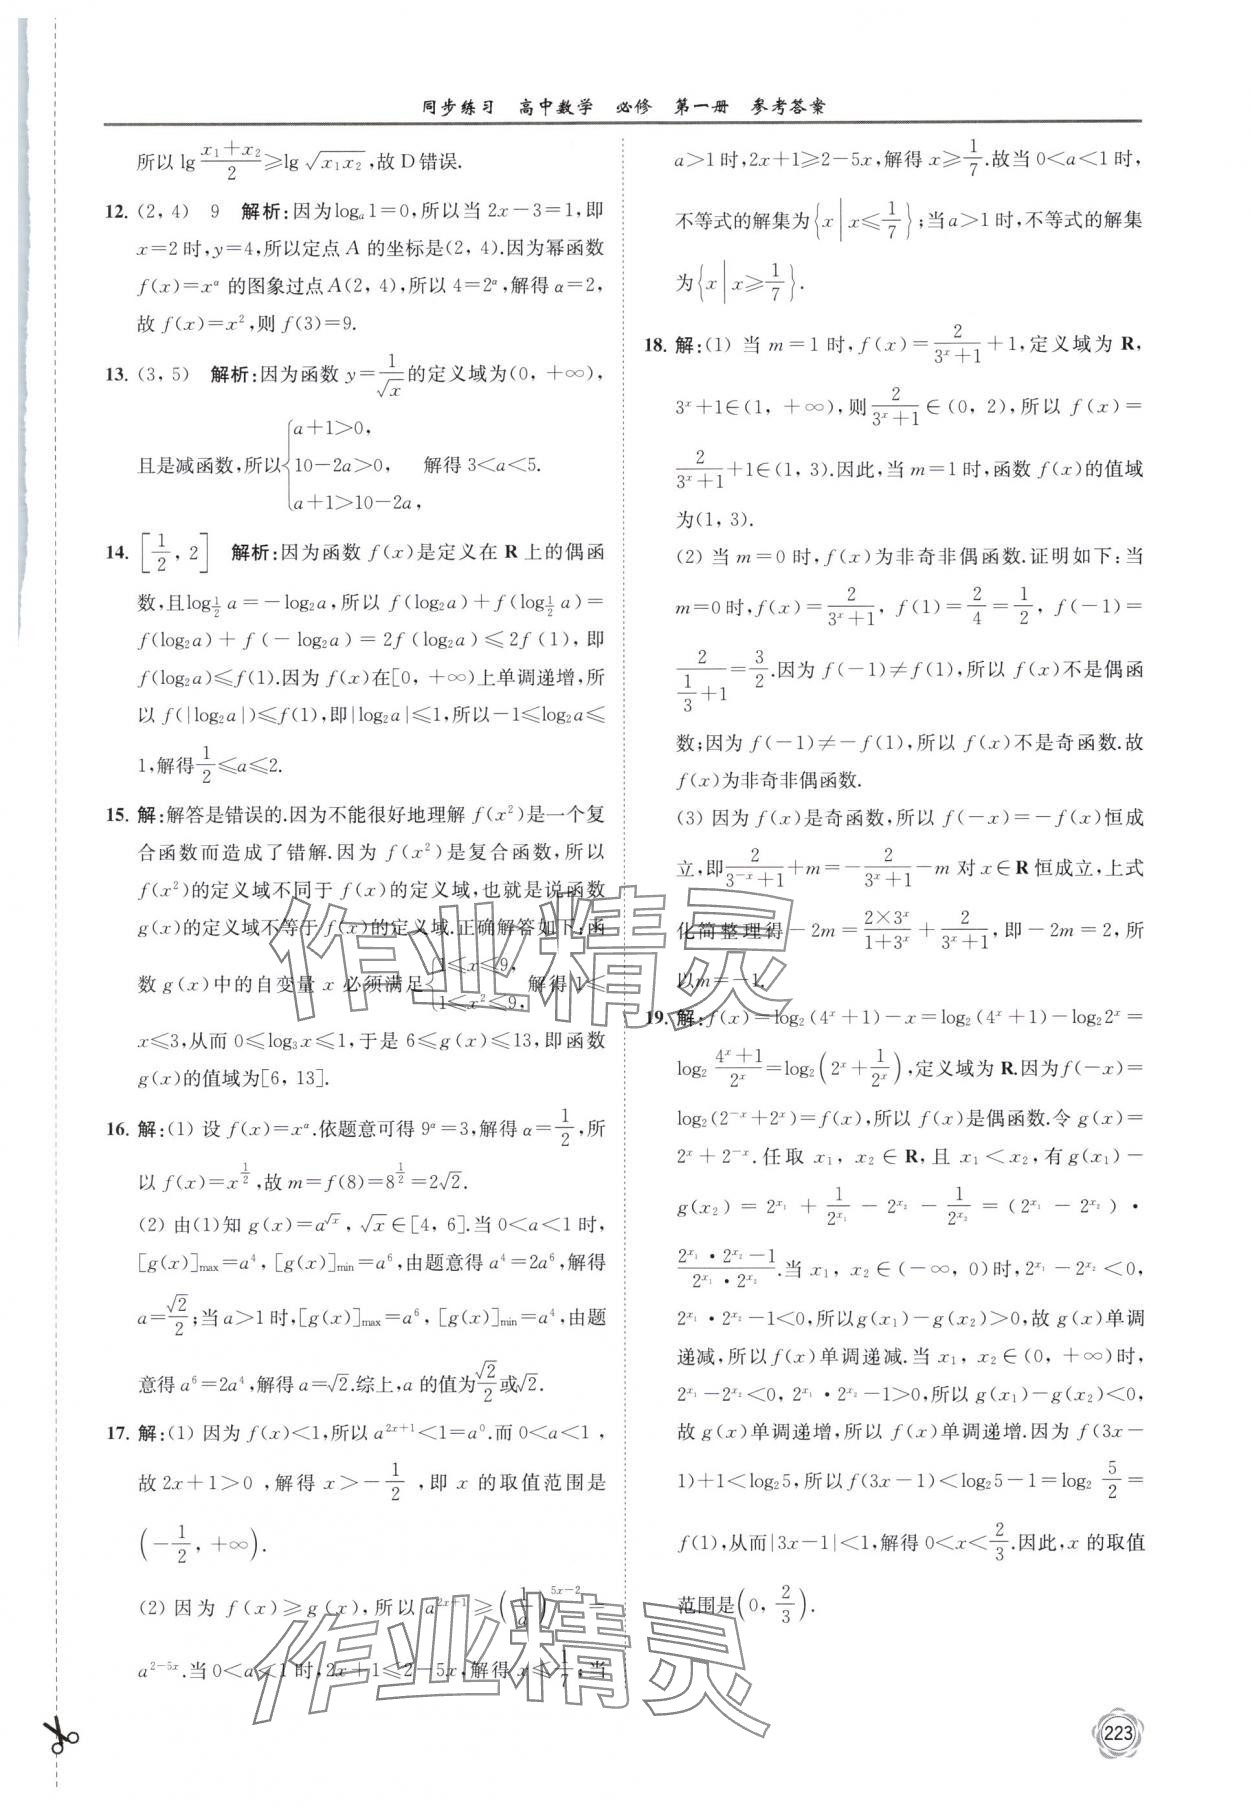 同步练习 高中数学 必修 第一册 参考答案
所以 lg (x₁+x₂)/2 ≥ lg √(x₁x₂),故 D 错误.
12. (2, 4) 9 解析:因为logₐ1=0,所以当 2x-3=1,即
x=2 时,y=4,所以定点 A 的坐标是(2, 4).因为幂函数
f(x)=x^α 的图象过点 A(2, 4),所以 4=2^α,解得 α=2,
故 f(x)=x²,则 f(3)=9.
13. (3, 5) 解析:因为函数 y=1/√x 的定义域为(0, +∞),
且是减函数,所以{a+1>0, 10-2a>0, a+1>10-2a, 解得 3<a<5.
14. [1/2, 2] 解析:因为函数 f(x)是定义在 R 上的偶函
数,且log_{1/2} a=-log₂a,所以 f(log₂a)+f(log_{1/2} a)=
f(log₂a)+f(-log₂a)=2f(log₂a)≤2f(1),即
f(log₂a)≤f(1).因为 f(x)在[0, +∞)上单调递增,所
以 f(|log₂a|)≤f(1),即|log₂a|≤1,所以-1≤log₂a≤
1,解得 1/2≤a≤2.
15. 解:解答是错误的.因为不能很好地理解 f(x²)是一个复
合函数而造成了错解.因为 f(x²)是复合函数,所以
f(x²)的定义域不同于 f(x)的定义域,也就是说函数
g(x)的定义域不等于 f(x)的定义域.正确解答如下:函
数 g(x)中的自变量 x 必须满足{1≤x≤9, 1≤x²≤9, 解得 1≤
x≤3,从而 0≤log₃x≤1,于是 6≤g(x)≤13,即函数
g(x)的值域为[6, 13].
16. 解:(1) 设 f(x)=x^α.依题意可得 9^α=3,解得 α=1/2,所
以 f(x)=x^{1/2},故 m=f(8)=8^{1/2}=2√2.
(2) 由(1)知 g(x)=a^{√x}, √x∈[4, 6].当 0<a<1 时,
[g(x)]max=a⁴, [g(x)]min=a⁶,由题意得 a⁴=2a⁶,解得
a=√2/2;当 a>1 时,[g(x)]max=a⁶, [g(x)]min=a⁴,由题
意得 a⁶=2a⁴,解得 a=√2.综上,a 的值为√2/2或√2.
17. 解:(1) 因为 f(x)<1,所以 a^{2x+1}<1=a⁰.而 0<a<1,
故 2x+1>0,解得 x>-1/2,即 x 的取值范围是
(-1/2, +∞).
(2) 因为 f(x)≥g(x),所以 a^{2x+1}≥(1/a)^{5x-2}=
a^{2-5x}.当 0<a<1 时,2x+1≤2-5x,解得 x≤1/7;当
a>1 时,2x+1≥2-5x,解得 x≥1/7.故当 0<a<1 时,
不等式的解集为{x|x≤1/7};当 a>1 时,不等式的解集
为{x|x≥1/7}.
18. 解:(1) 当 m=1 时,f(x)=2/(3^x+1)+1,定义域为 R,
3^x+1∈(1, +∞),则 2/(3^x+1)∈(0, 2),所以 f(x)=
2/(3^x+1)+1∈(1, 3).因此,当 m=1 时,函数 f(x)的值域
为(1, 3).
(2) 当 m=0 时,f(x)为非奇非偶函数.证明如下:当
m=0 时,f(x)=2/(3^x+1), f(1)=2/4=1/2, f(-1)=
2/(1/3+1)=3/2.因为 f(-1)≠f(1),所以 f(x)不是偶函
数;因为 f(-1)≠-f(1),所以 f(x)不是奇函数.故
f(x)为非奇非偶函数.
(3) 因为 f(x)是奇函数,所以 f(-x)=-f(x)恒成
立,即 2/(3^{-x}+1)+m=-2/(3^x+1)-m 对 x∈R 恒成立,上式
化简整理得-2m=(2×3^x)/(1+3^x)+2/(3^x+1),即-2m=2,所
以m=-1.
19. 解:f(x)=log₂(4^x+1)-x=log₂(4^x+1)-log₂2^x=
log₂ (4^x+1)/2^x=log₂(2^x+1/2^x),定义域为 R.因为f(-x)=
log₂(2^{-x}+2^x)=f(x),所以 f(x)是偶函数.令 g(x)=
2^x+2^{-x}.任取 x₁, x₂∈R,且 x₁<x₂,有 g(x₁)-
g(x₂)=2^{x₁}+1/2^{x₁}-2^{x₂}-1/2^{x₂}=(2^{x₁}-2^{x₂})·
(2^{x₁}·2^{x₂}-1)/(2^{x₁}·2^{x₂}).当 x₁, x₂∈(-∞, 0)时,2^{x₁}-2^{x₂}<0,
2^{x₁}·2^{x₂}-1<0,所以g(x₁)-g(x₂)>0,故 g(x)单调
递减,所以 f(x)单调递减.当 x₁, x₂∈(0, +∞)时,
2^{x₁}-2^{x₂}<0, 2^{x₁}·2^{x₂}-1>0,所以 g(x₁)-g(x₂)<0,
故 g(x)单调递增,所以 f(x)单调递增.因为 f(3x-
1)+1<log₂5,所以 f(3x-1)<log₂5-1=log₂ 5/2=
f(1),从而|3x-1|<1,解得 0<x<2/3.因此,x 的取值
范围是(0, 2/3).
作业精灵
作业精灵
223